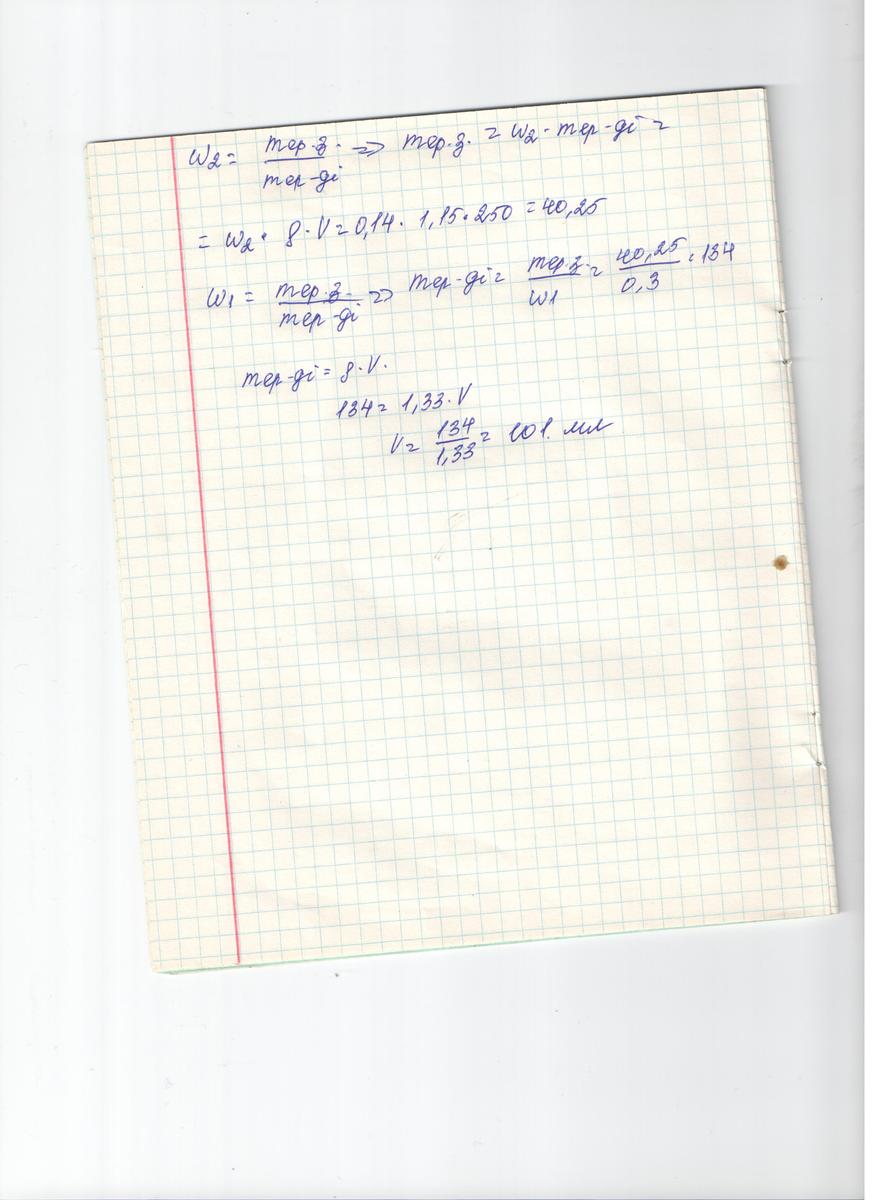 w₂ = mер.з. / mер-ді => mер.з. = w₂ · mер-ді =
= w₂ · ρ · V = 0,14 · 1,15 · 250 = 40,25
w₁ = mер.з. / mер-ді => mер-ді = mер.з. / w₁ = 40,25 / 0,3 = 134
mер-ді = ρ · V.
134 = 1,33 · V
V = 134 / 1,33 = 101 мл